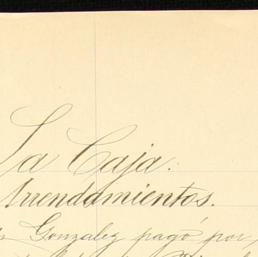 La Caja.
Arrendamientos.
Gonzalez pagó por